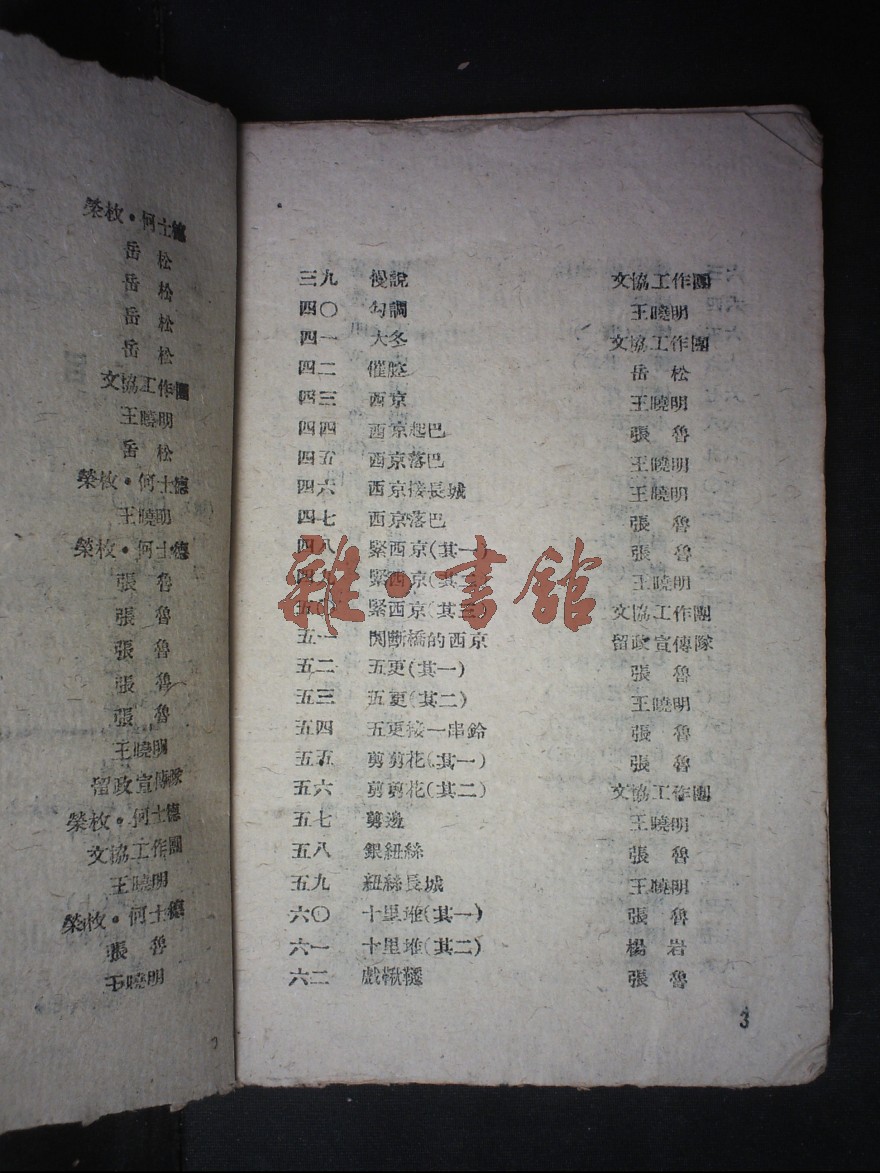 榮枚·何士德
岳松
岳松
岳松
岳松
文協工作團
王曉明
岳松
榮枚·何士德
王曉明
榮枚·何士德
張魯
張魯
張魯
張魯
張魯
王曉明
留政宣傳隊
榮枚·何士德
文協工作團
王曉明
榮枚·何士德
張魯
王曉明
三九 慢說 文協工作團
四〇 勾調 王曉明
四一 大冬 文協工作團
四二 催腔 岳松
四三 西京 王曉明
四四 西京起巴 張魯
四五 西京落巴 王曉明
四六 西京接長城 王曉明
四七 西京落巴 張魯
四八 緊西京(其一) 張魯
四九 緊西京(其二) 王曉明
五〇 緊西京(其三) 文協工作團
五一 閃斷橋的西京 留政宣傳隊
五二 五更(其一) 張魯
五三 五更(其二) 王曉明
五四 五更接一串鈴 張魯
五五 剪剪花(其一) 張魯
五六 剪剪花(其二) 文協工作團
五七 剪邊 王曉明
五八 銀紐絲 張魯
五九 紐絲長城 王曉明
六〇 十里堆(其一) 張魯
六一 十里堆(其二) 楊岩
六二 戲楸韆 張魯
3
雜·書館